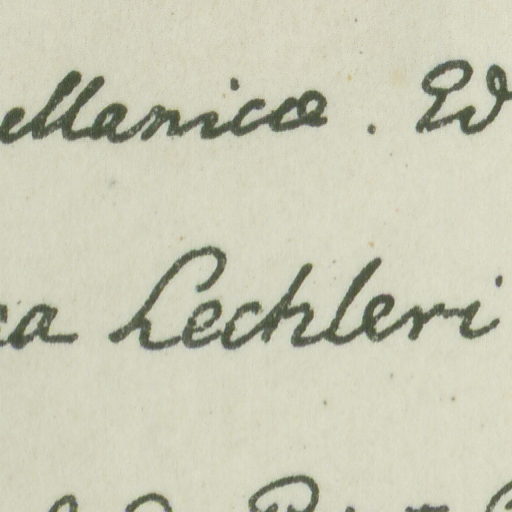 ellanicae . Ed
ea Lechleri